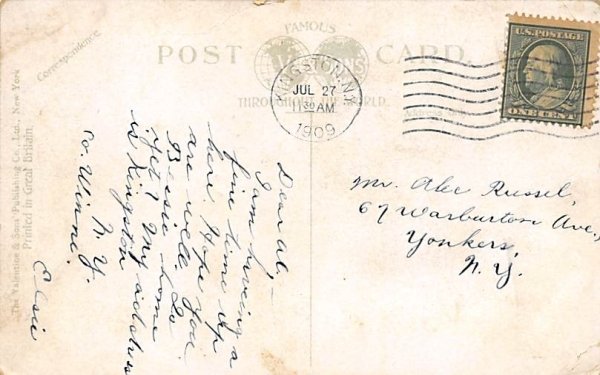 Correspondence.
POST CARD.
FAMOUS
THROUGHOUT THE WORLD.
KINGSTON, N.Y.
JUL 27
11 30 AM
1909
U.S. POSTAGE
ONE CENT
The Valentine & Sons' Publishing Co., Ltd., New York
Printed in Great Britain.
Dear Al, –
I am having a
fine time up
here. Hope you
are well. Is
Bessie home
yet? My address
is Kingston
N. Y.
co. Winne.
Elsie
Mr. Abe Russel,
67 Warburton Ave.,
Yonkers,
N. Y.